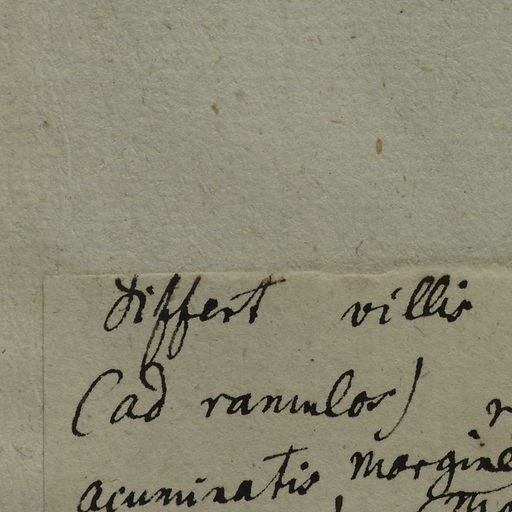 Differt villis
(ad ramulos)
acuminatis margine